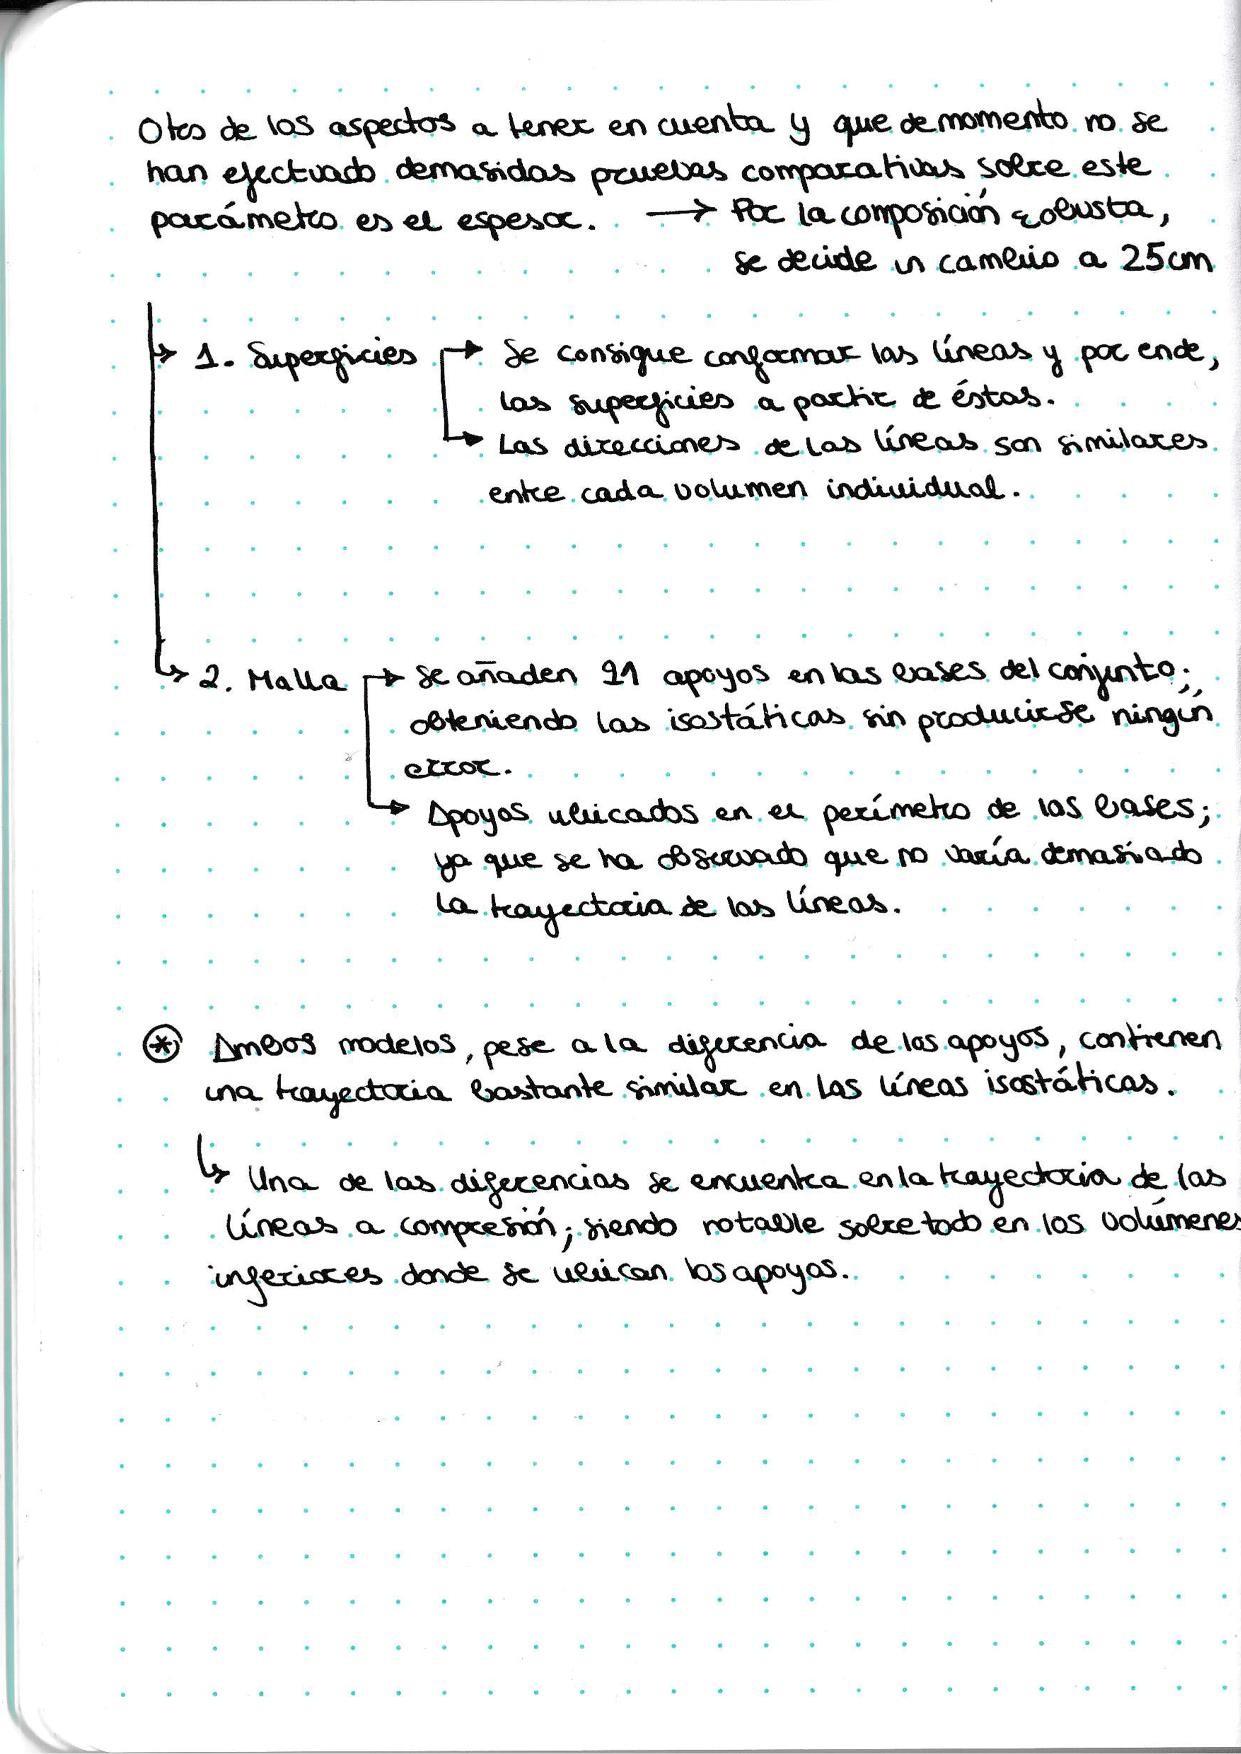 Otro de los aspectos a tener en cuenta y que de momento no se
han efectuado demasidas pruebas comparativas sobre este
parámetro es el espesor. → Por la composición robusta,
se decide un cambio a 25cm
↳ 1. Superficies → Se consigue conformar las líneas y por ende,
las superficies a partir de éstas.
↳ Las direcciones de las líneas son similares
entre cada volumen individual.
↳ 2. Malla → Se añaden 21 apoyos en las bases del conjunto;
obteniendo las isostáticas sin producirse ningún
error.
↳ Apoyos ubicados en el perímetro de las bases;
ya que se ha observado que no varía demasiado
la trayectoria de las líneas.
⊛ Ambos modelos, pese a la diferencia de los apoyos, contienen
una trayectoria bastante similar en las líneas isostáticas.
↳ Una de las diferencias se encuentra en la trayectoria de las
líneas a compresión; siendo notable sobre todo en los volúmenes
inferiores donde se ubican los apoyos.